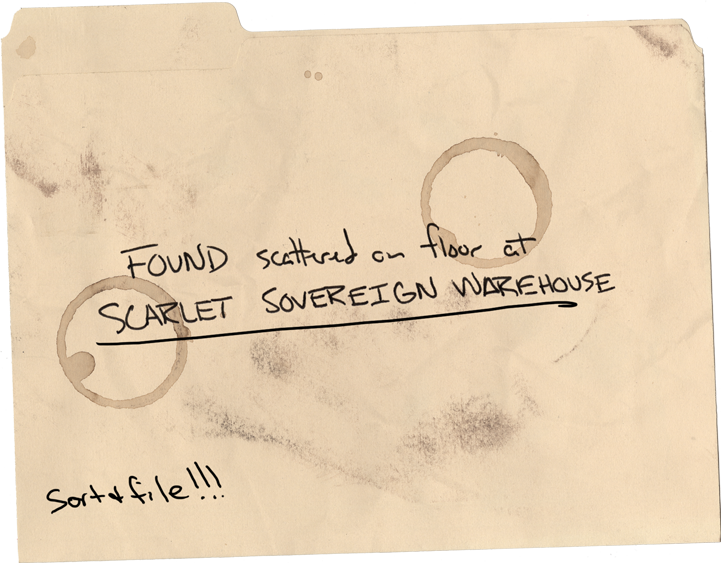 FOUND scattered on floor at
SCARLET SOVEREIGN WAREHOUSE
Sort & file!!!